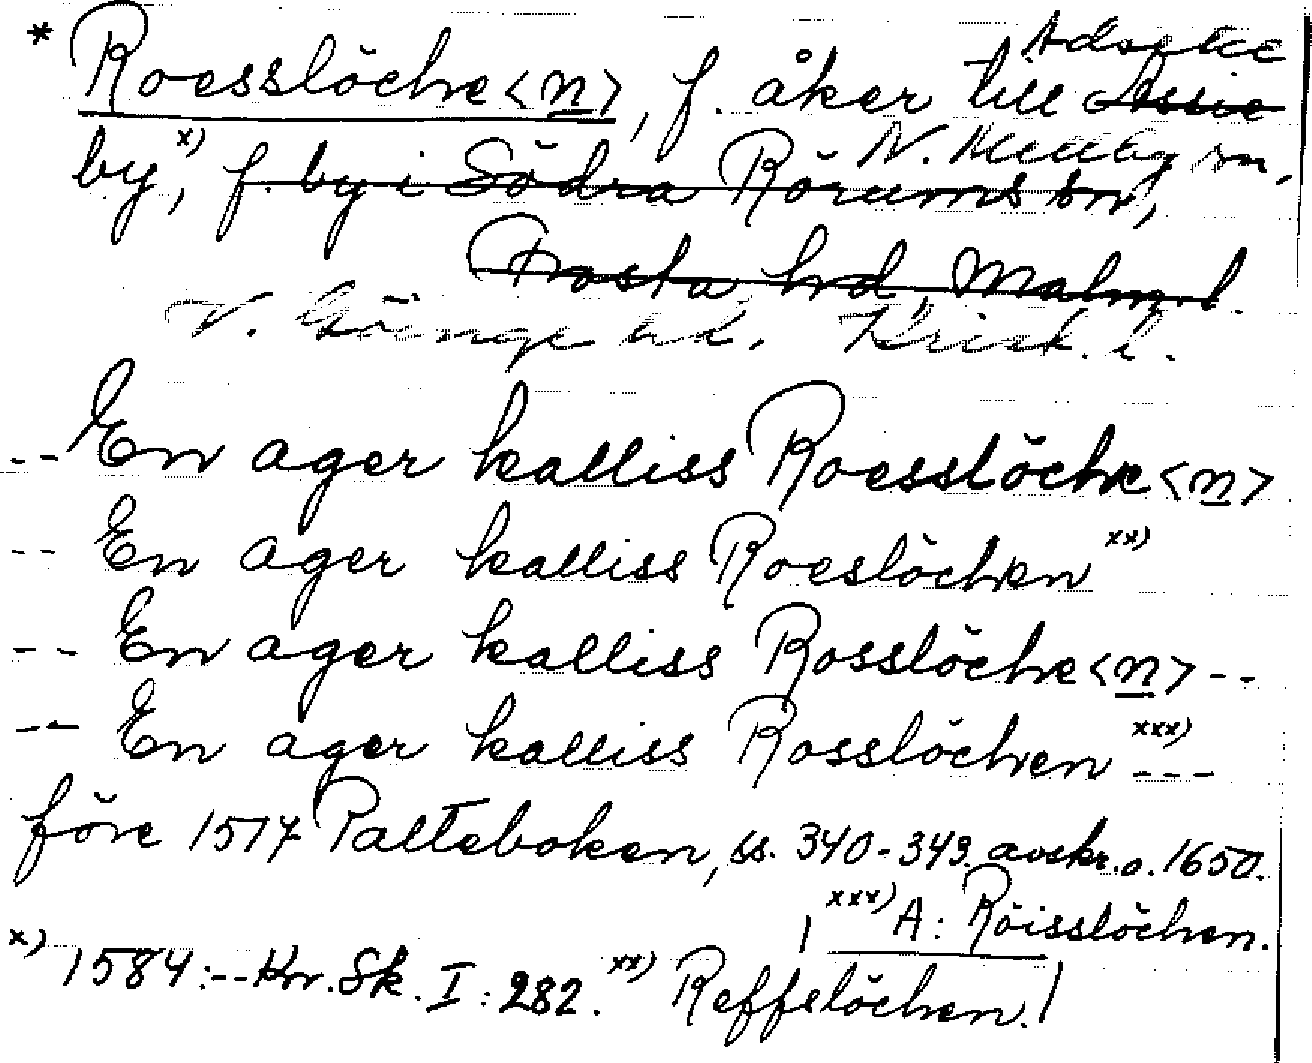 * Roesslöche<n>, f. åker till Adsetee Assie
by, x) f. by i Södra Rörums sn, N. Mellby sn,
Frosta hrd, Malm. l.
V. Göinge hd. Krist. l.
-- En ager kalliss Roesslöche<n>
-- En ager kalliss Roeslöchen xx)
-- En ager kalliss Rosslöche<n> --
-- En ager kalliss Rosslöchen xxx) ---
före 1517 Palteboken, ss. 340-349. avskr. o. 1650.
xxx) A: Röisslöchen.
x) 1584:-- Kr. Sk. I: 282. xx) Reffslöchen.